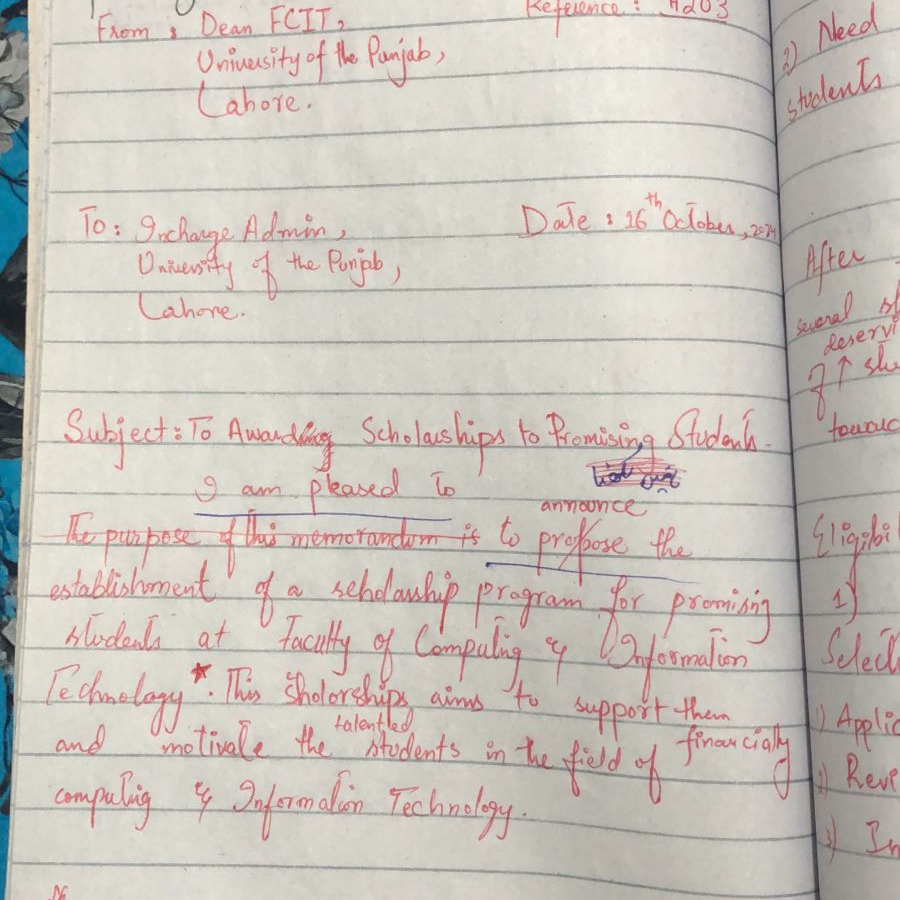 From : Dean FCIT,
Reference : A203
University of the Punjab,
Lahore.
To: Incharge Admin,
Date : 16th October, 2024
University of the Punjab,
Lahore.
Subject: To Awarding Scholarships to Promising Students.
I am pleased to
announce
The purpose of this memorandum is to propose the
establishment of a scholarship program for promising
students at Faculty of Computing & Information
Technology*. This Sholorships aims to support them
talented
financially
and motivate the students in the field of
computing & Information Technology.
2) Need
students
After
several
deservi
of ↑
Eligibi
1)
Select
1) Applic
2) Revi
3) In